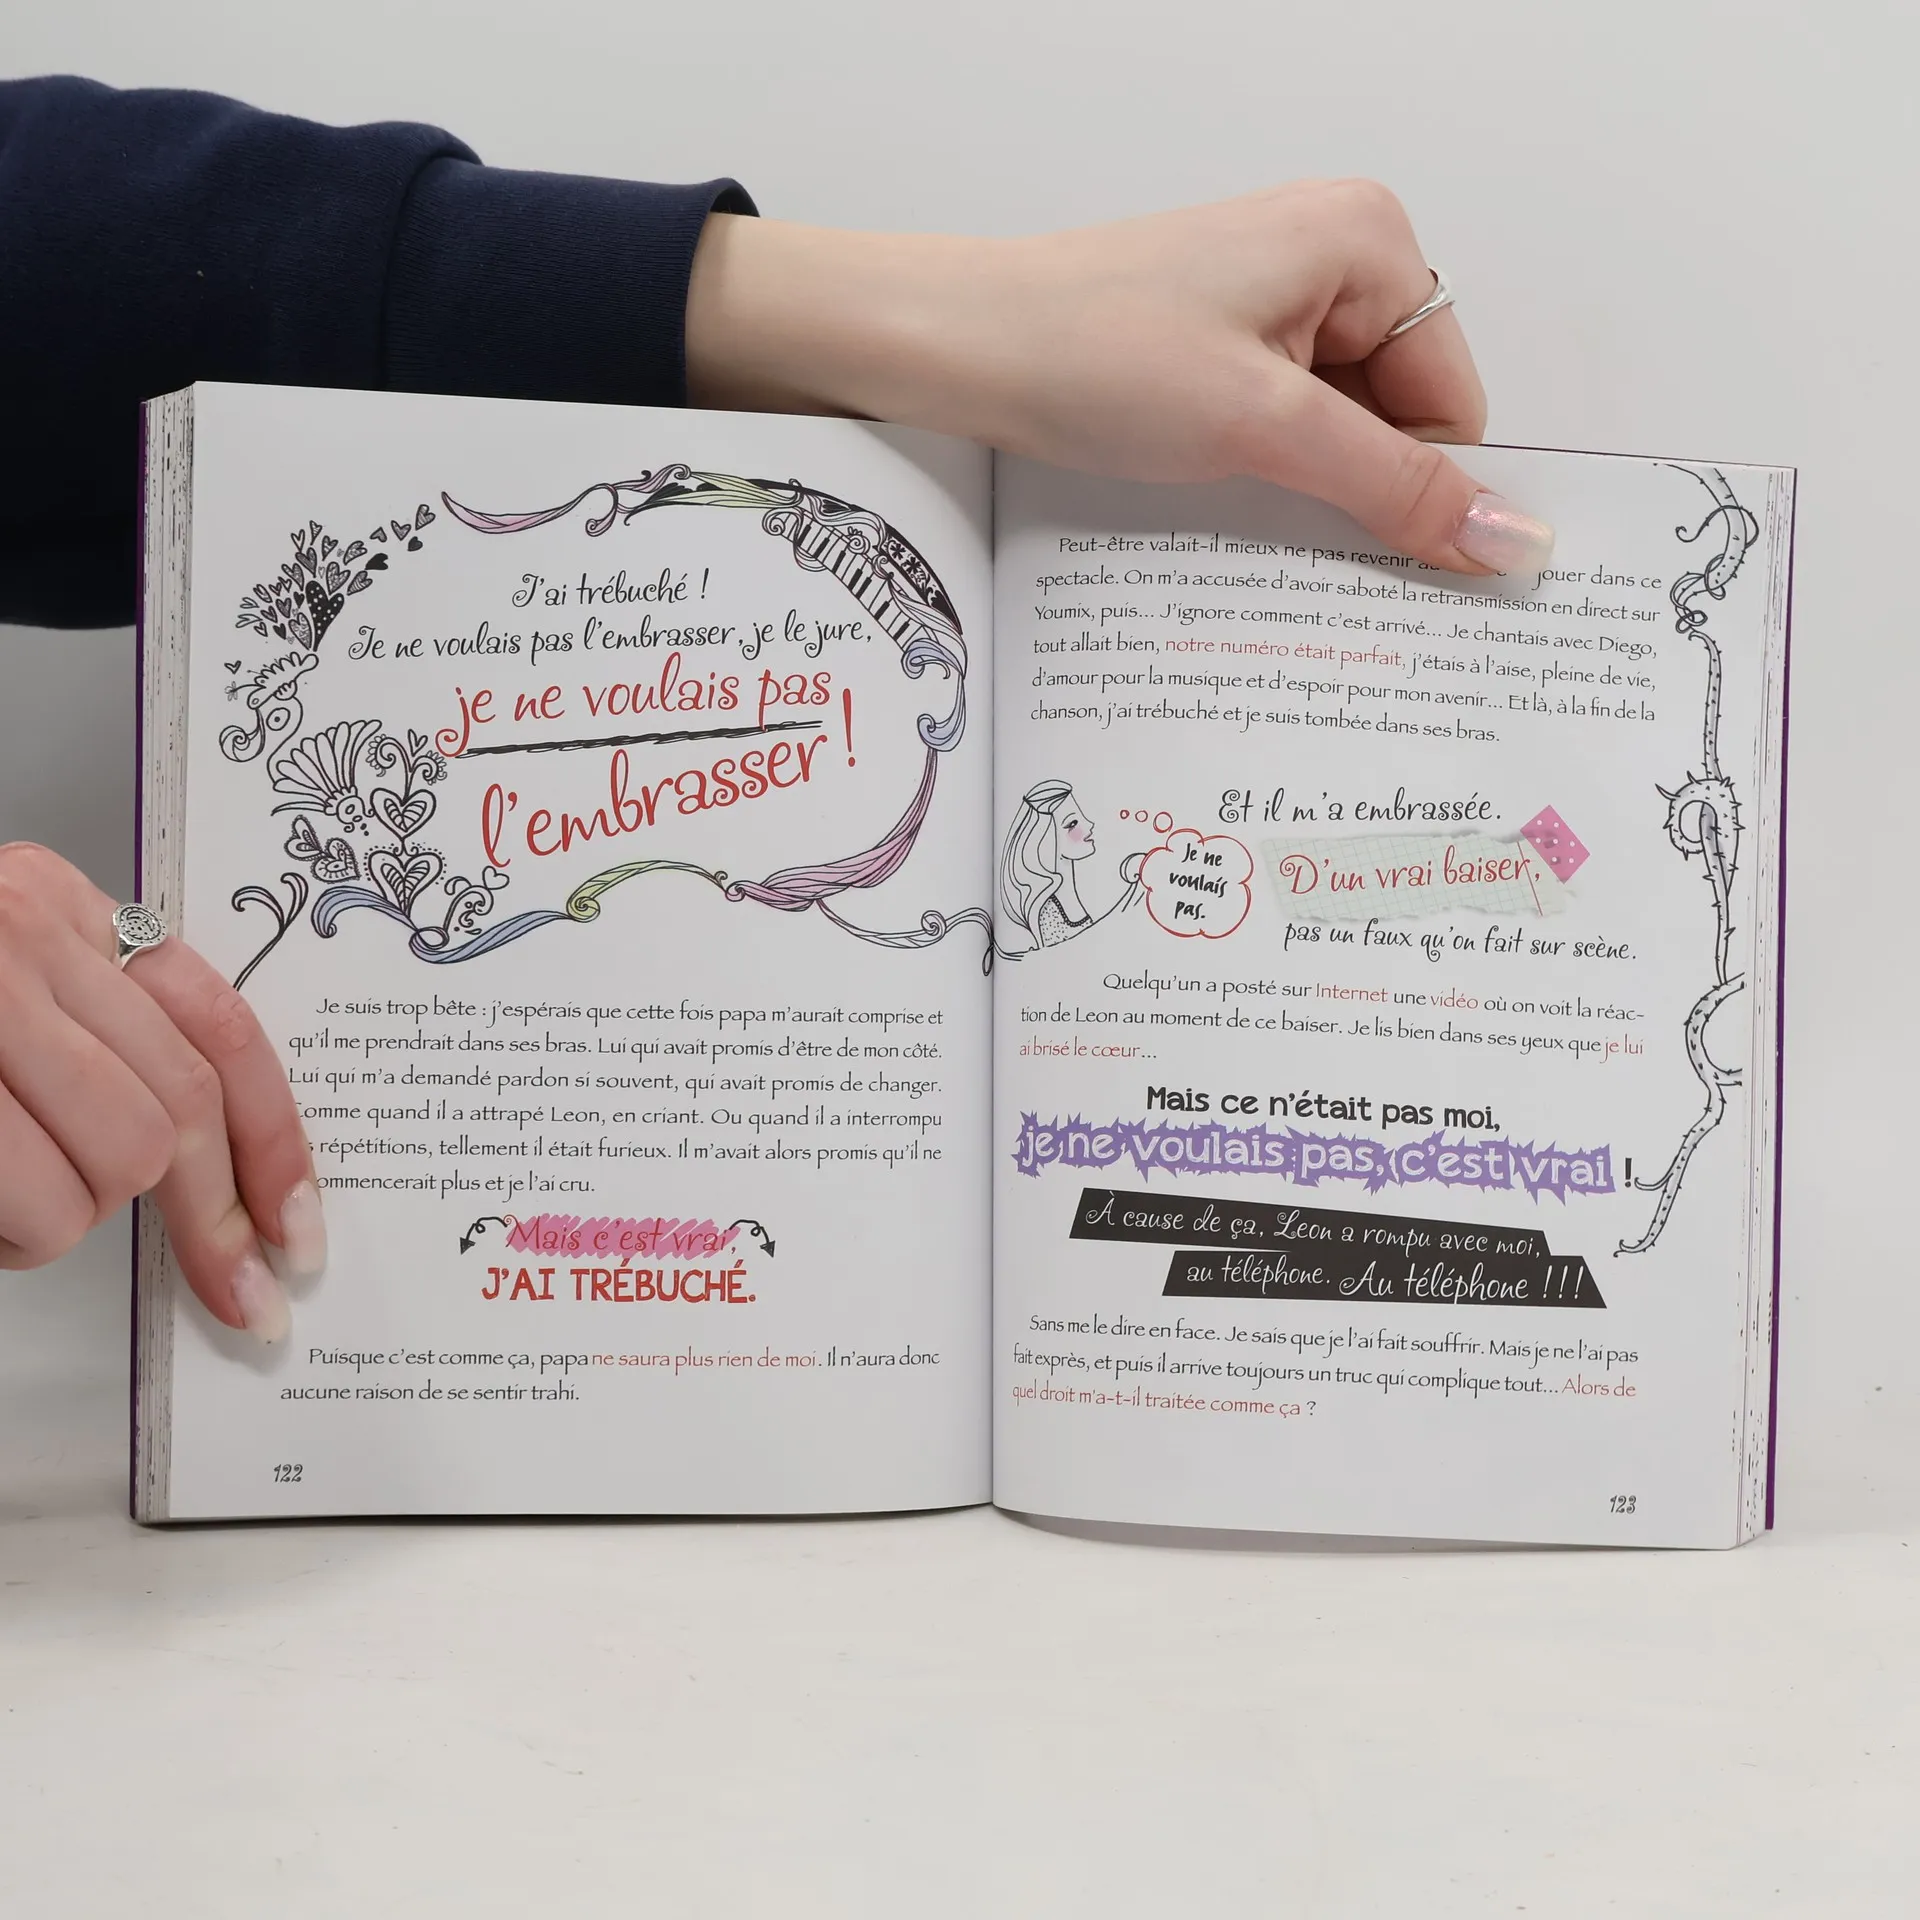 J'ai trébuché !
Je ne voulais pas l'embrasser, je le jure,
je ne voulais pas
l'embrasser !
Je suis trop bête : j'espérais que cette fois papa m'aurait comprise et
qu'il me prendrait dans ses bras. Lui qui avait promis d'être de mon côté.
Lui qui m'a demandé pardon si souvent, qui avait promis de changer.
Comme quand il a attrapé Leon, en criant. Ou quand il a interrompu
répétitions, tellement il était furieux. Il m'avait alors promis qu'il ne
ommencerait plus et je l'ai cru.
Mais c'est vrai,
J'AI TRÉBUCHÉ.
Puisque c'est comme ça, papa ne saura plus rien de moi. Il n'aura donc
aucune raison de se sentir trahi.
122
Peut-être valait-il mieux ne pas revenir jouer dans ce
spectacle. On m'a accusée d'avoir saboté la retransmission en direct sur
Youmix, puis... J'ignore comment c'est arrivé... Je chantais avec Diego,
tout allait bien, notre numéro était parfait, j'étais à l'aise, pleine de vie,
d'amour pour la musique et d'espoir pour mon avenir... Et là, à la fin de la
chanson, j'ai trébuché et je suis tombée dans ses bras.
Je ne
voulais
pas.
Et il m'a embrassée.
D'un vrai baiser,
pas un faux qu'on fait sur scène.
Quelqu'un a posté sur Internet une vidéo où on voit la réac-
tion de Leon au moment de ce baiser. Je lis bien dans ses yeux que je lui
ai brisé le cœur...
Mais ce n'était pas moi,
je ne voulais pas, c'est vrai !
À cause de ça, Leon a rompu avec moi,
au téléphone. Au téléphone !!!
Sans me le dire en face. Je sais que je l'ai fait souffrir. Mais je ne l'ai pas
fait exprès, et puis il arrive toujours un truc qui complique tout... Alors de
quel droit m'a-t-il traitée comme ça ?
123